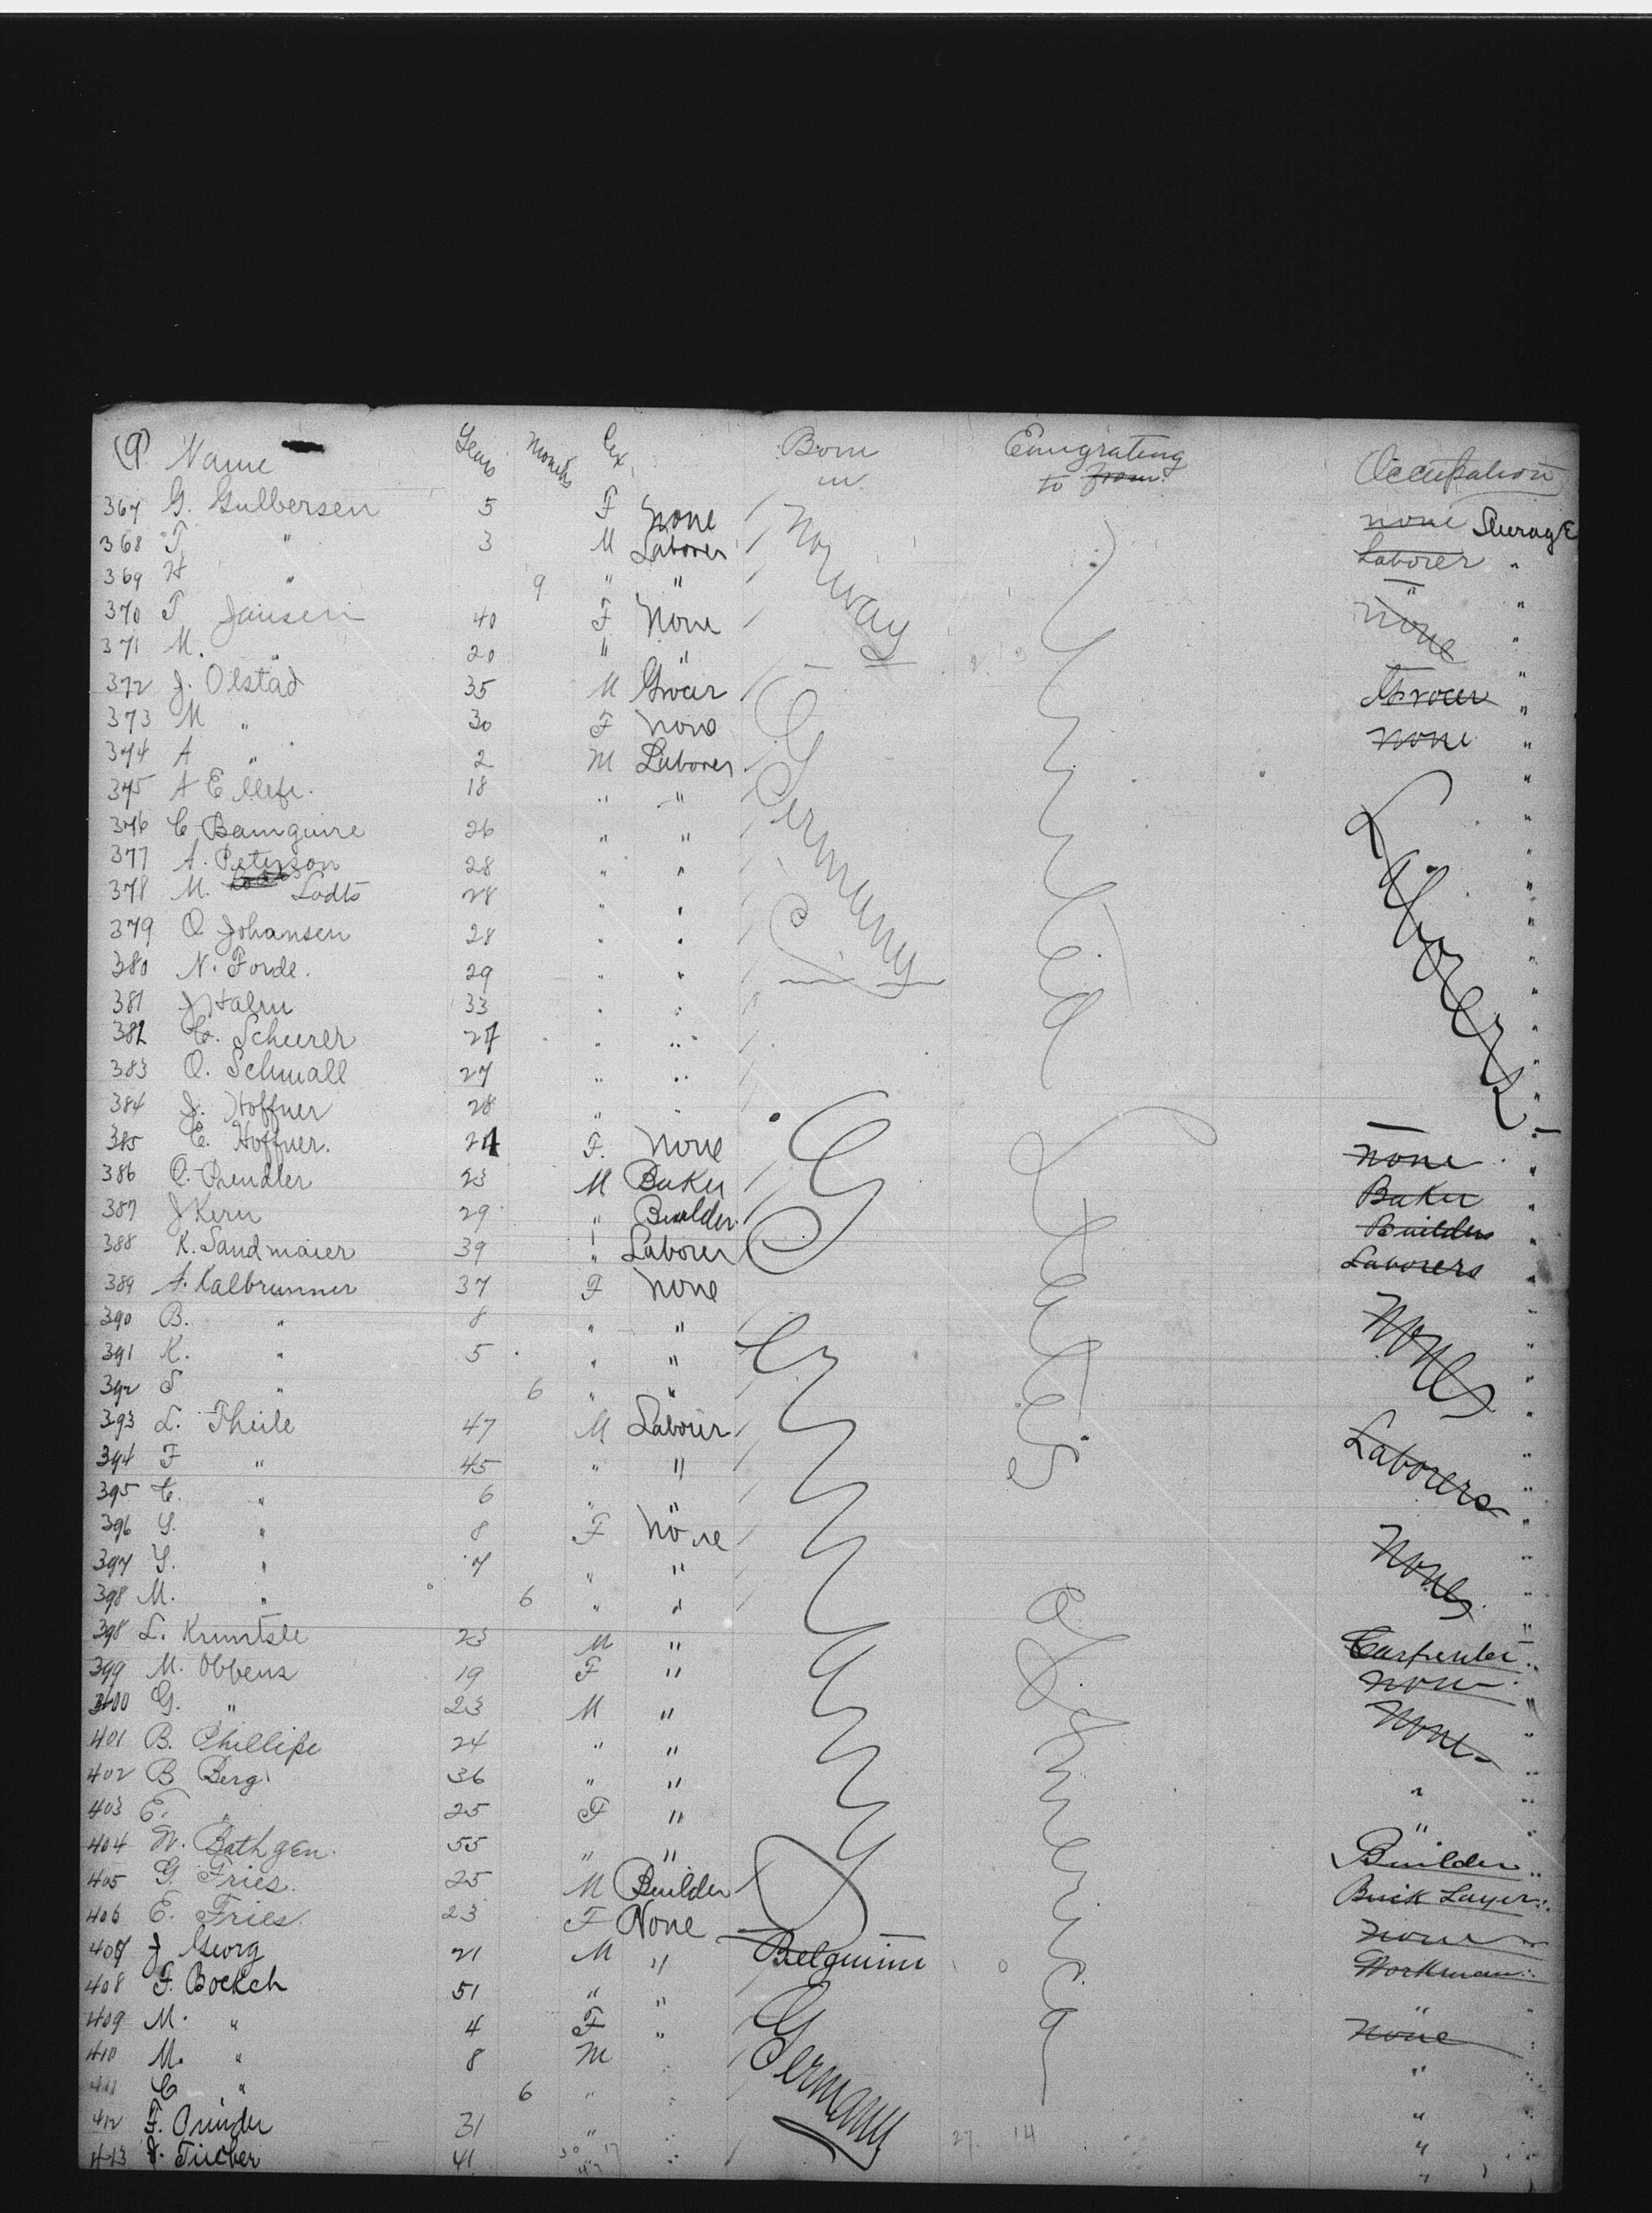 (9) Name Years Months Sex Born in Emigrating to from Occupation
367 G. Gulbersen 5 F none Norway none Steerage
368 T. " 3 M Laborer Laborer "
369 H " 9 " " " "
370 T Jansen 40 F None none "
371 M. " 20 " " "
372 J. Olstad 35 M Grocer Germany Grocer "
373 M " 30 F none none "
374 A " 2 M Laborer Laborers "
375 A 18 " " "
376 C 26 " " "
377 A. Peterson 28 " " "
378 M. Lodts 28 " " "
379 O Johansen 28 " " "
380 N. Forde. 29 " " "
381 J Halm 33 " " "
382 C. Scheerer 27 " " "
383 O. Schmall 27 " " "
384 J. Hoffner 28 " " "
385 E. Hoffner. 24 F. None Germany United States of America none "
386 O. Rendler 23 M Baker Baker "
387 J Kern 29 " Builder Builder "
388 K. Sandmaier 39 " Laborer Laborers "
389 A. Kalbrunner 37 F none Nones "
390 B. " 8 " " "
391 K. " 5 " " "
392 S " 6 " " "
393 L. Theile 47 M Laborer Laborers "
394 F " 45 " " "
395 C. " 6 " " "
396 Y. " 8 F none Nones "
397 Y. " 7 " " "
398 M. " 6 " " "
398 L. 23 M " Carpenter "
399 M. Obbens 19 F " none "
400 G. " 23 M " None "
401 B. Phillipe 24 " " "
402 B Berg 36 " " " "
403 E. " 25 F " " "
404 W. Bathgen. 55 " " Builder "
405 G. Fries. 25 M Builder Brick Layer "
406 E. Fries. 23 F None none "
407 J Georg 21 M " Belguim Workman "
408 F. Boekch 51 " " Germany " "
409 M. " 4 F " none "
410 M. " 8 M " " "
411 C " 6 " " "
412 F. 31 " " " "
413 J. 41 " " "